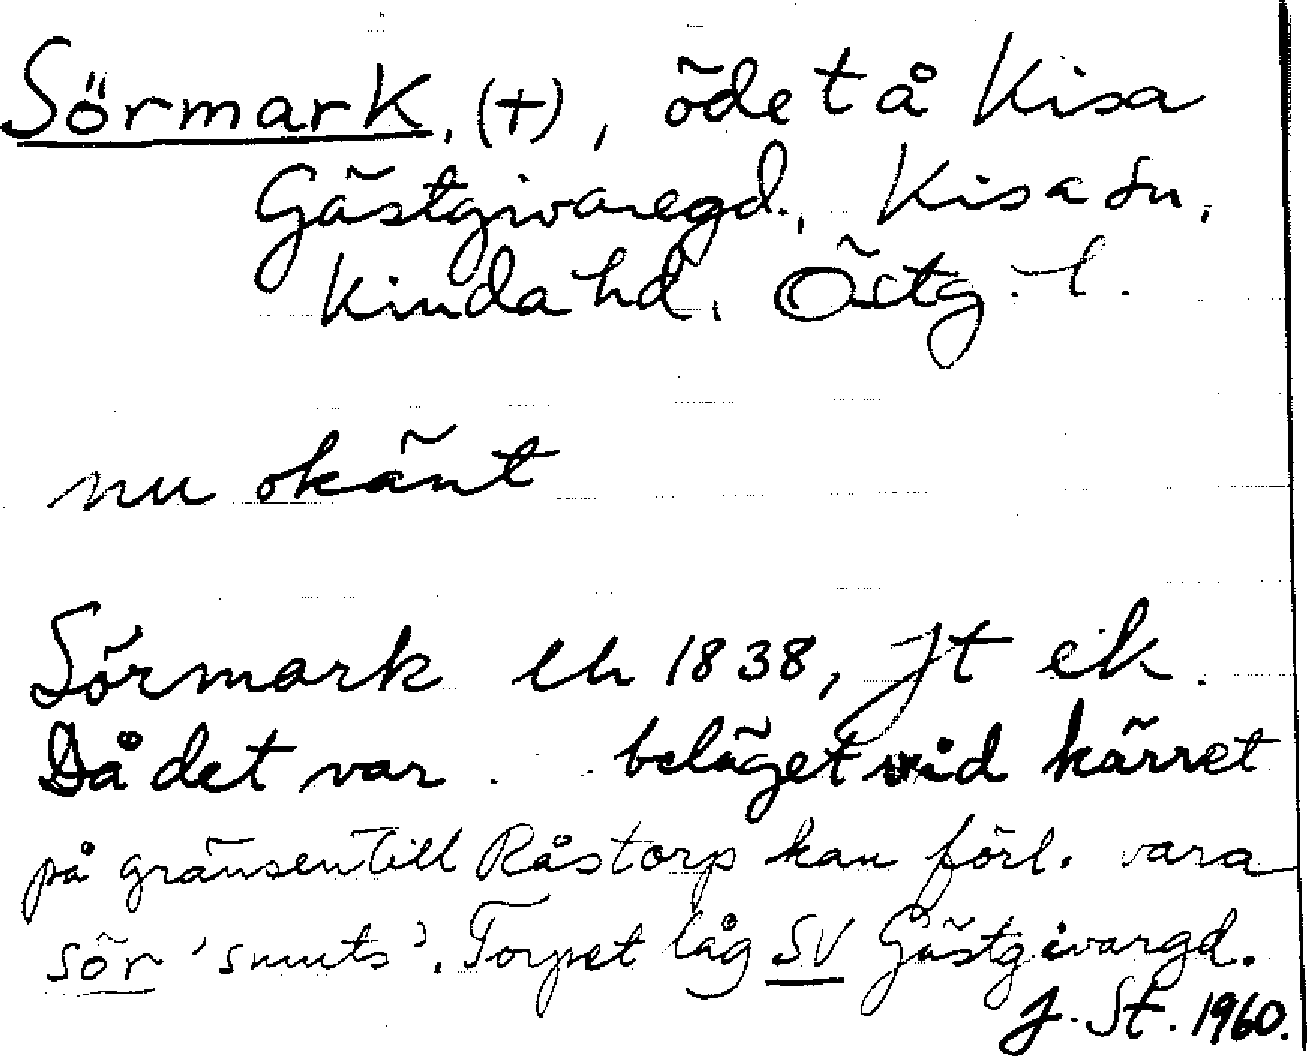 Sörmark, (+), ödet å Kisa
Gästgivaregd., Kisa sn,
Kinda hd, Östg. l.
nu okänt
Sörmark lh 1838, Jt ek.
Då det var beläget vid kärret
på gränsen till Råstorp kan förl. vara
sör 'smuts'. Torpet låg SV Gästgivargd.
J. St. 1960.